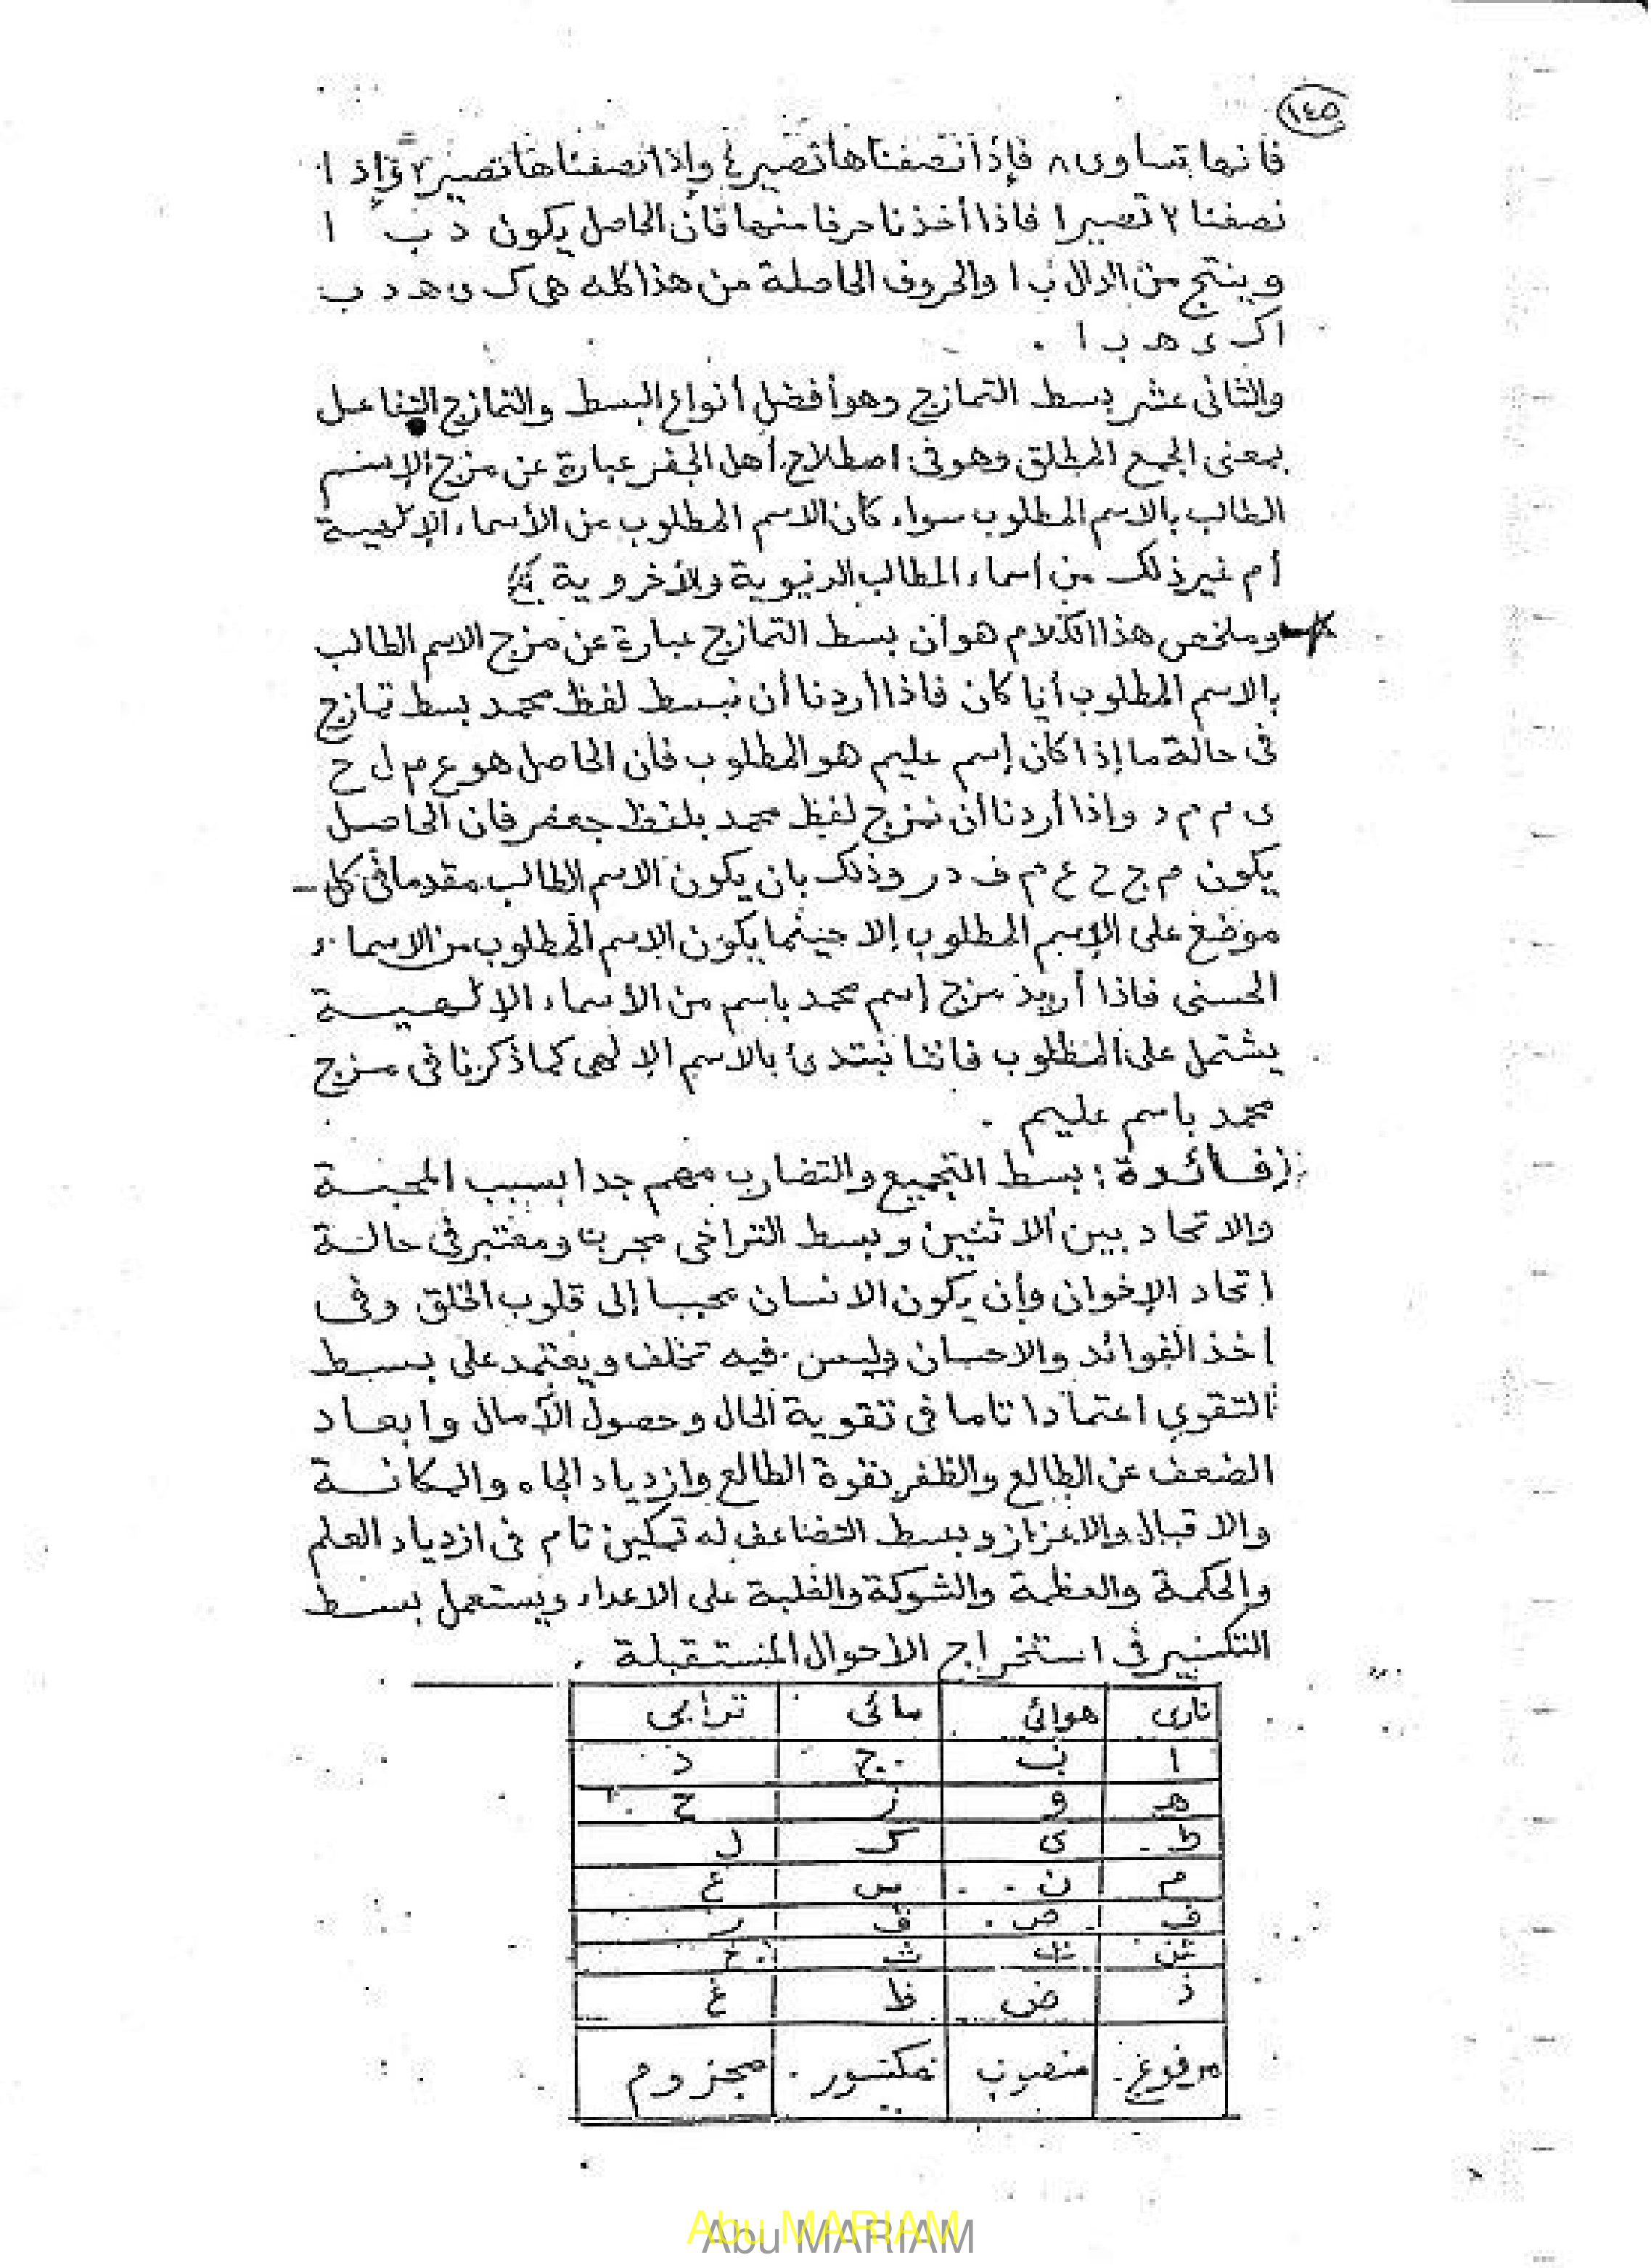 ١٤٥
فانها تساوى ٨ فإذا نصفناها تصير ٤ وإذا نصفناها تصير ٢ وإذا
نصفنا ٢ تصير ا فاذا أخذنا حرفا منها فان الحاصل يكون د ب ا
وينتج من الدال ب ا والحروف الحاصلة من هذا كله هى ك ى ه د ب
ا ك ى ه ب ا .
والثانى عشر بسط التمازج وهو أفضل أنواع البسط والتمازج التفاعل
بمعنى الجمع المطلق وهو فى اصطلاح أهل الجفر عبارة عن مزج الإسم
الطالب بالاسم المطلوب سواء كان الاسم المطلوب من الأسماء الإلهية
أم غير ذلك من أسماء المطالب الدنيوية والأخروية
وملخص هذا الكلام هو أن بسط التمازج عبارة عن مزج الاسم الطالب
بالاسم المطلوب أيا كان فاذا أردنا أن نبسط لفظ محمد بسط تمازج
فى حالة ما إذا كان إسم عليم هو المطلوب فان الحاصل هو ع م ل ح
ى م م د وإذا أردنا أن نمزج لفظ محمد بلفظ جعفر فان الحاصل
يكون م ج ح ع م ف د ر وذلك بان يكون الاسم الطالب مقدما فى كل -
موضع على الإسم المطلوب إلا حينما يكون الاسم المطلوب من الاسماء
الحسنى فاذا أريد مزج إسم محمد باسم من الأسماء الإلهية
يشتمل على المطلوب فاننا نبتدئ بالاسم الالهى كما ذكرنا فى مزج
محمد باسم عليم .
(فائدة : بسط التجميع والتضارب مهم جدا بسبب المحبة
والاتحاد بين الاثنين وبسط التراخى مجرب ومعتبر فى حالة
اتحاد الإخوان وأن يكون الانسان محببا إلى قلوب الخلق وفى
اخذ الفوائد والاحسان وليس فيه تخلف ويعتمد على بسط
التقوى اعتمادا تاما فى تقوية الحال وحصول الآمال وابعاد
الضعف عن الطالع والظفر بقوة الطالع وازدياد الجاه والمكانة
والاقبال والاعزاز وبسط التضاعف له تمكين تام فى ازدياد العلم
والحكمة والعظمة والشوكة والغلبة على الاعداء ويستعمل بسط
التكسير فى استخراج الاحوال المستقبلة .
نارى هوائى مائى ترابى
ا ب ج د
ه و ز ح
ط ى ك ل
م ن س ع
ف ص ق ر
ش ت ث خ
ذ ض ظ غ
مرفوع منصوب مكسور مجزوم
Abu MARIAM
Abu MARIAM